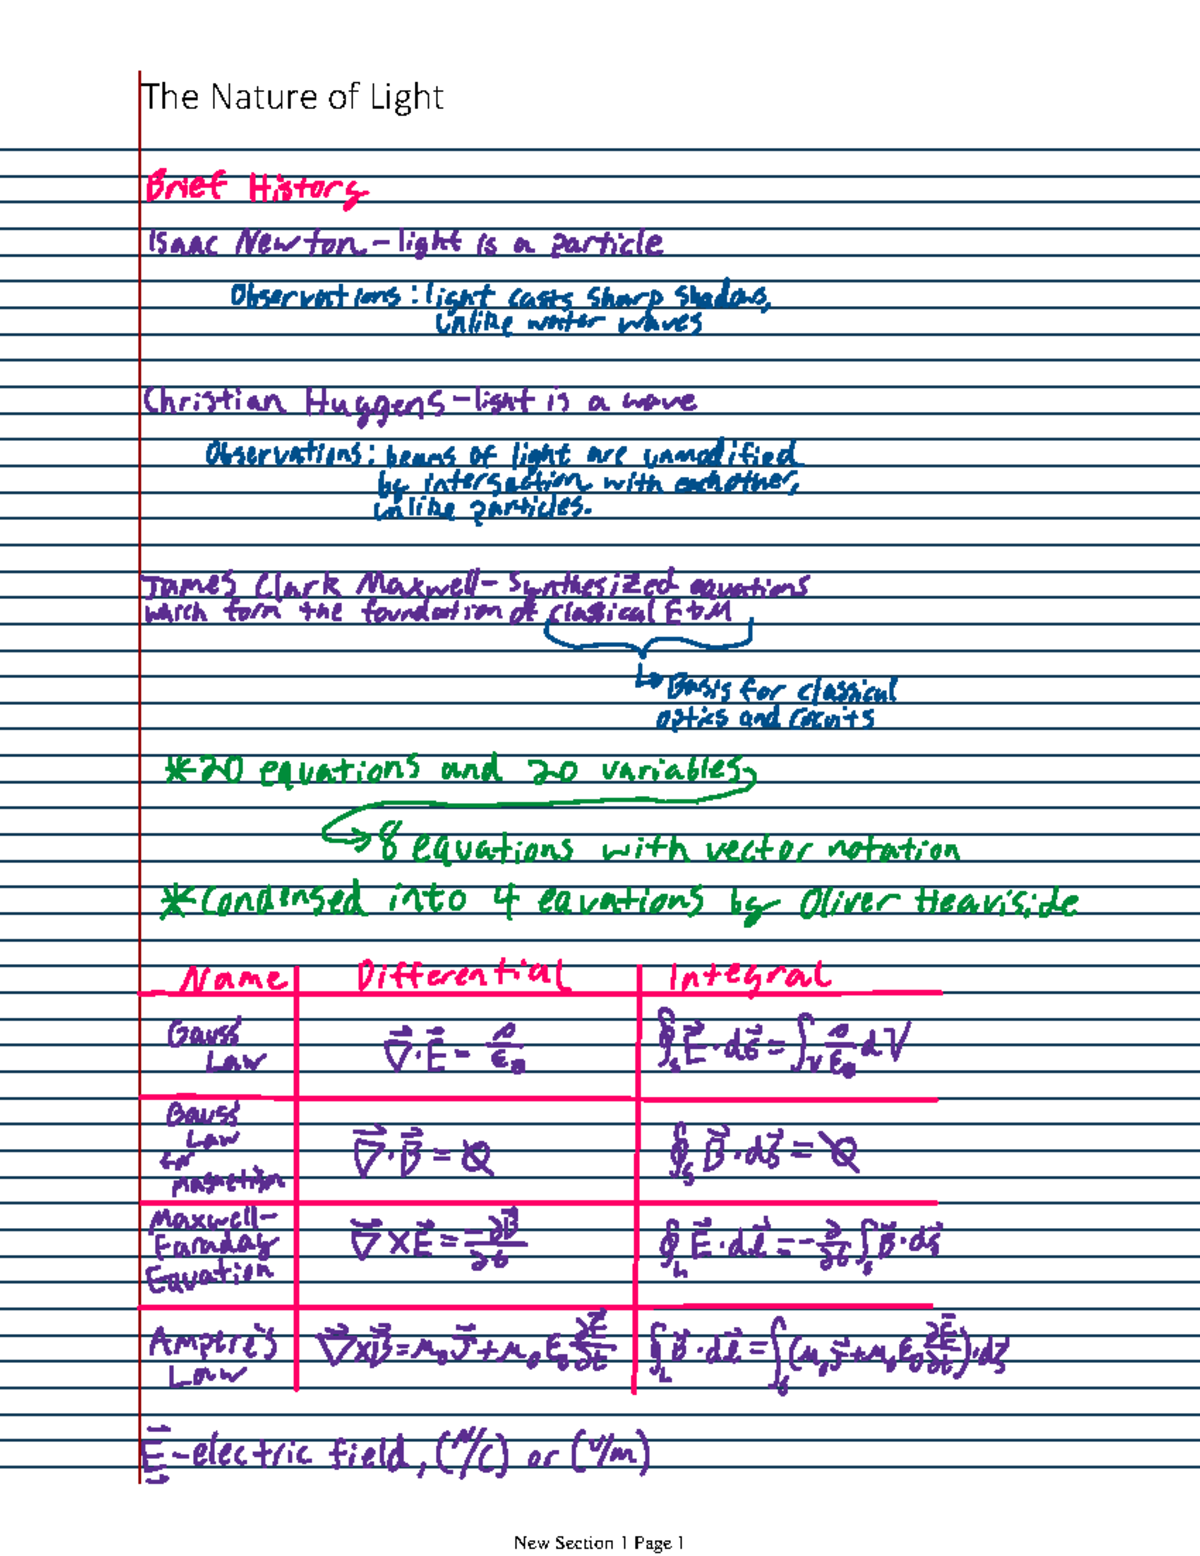 The Nature of Light
Brief History
Isaac Newton - light is a particle
Observations: light casts sharp shadows,
unlike water waves
Christian Huygens - light is a wave
Observations: beams of light are unmodified
by intersection with eachother,
unlike particles.
James Clark Maxwell - Synthesized equations
which form the foundation of classical E&M
↳ Basis for classical
optics and circuits
*20 equations and 20 variables
→ 8 equations with vector notation
*Condensed into 4 equations by Oliver Heaviside
Name Differential Integral
Gauss' Law ∇⃗·E⃗ = ρ/ε₀ ∮ₛ E⃗·ds⃗ = ∫ᵥ ρ/ε₀ dV
Gauss' Law for magnetism ∇⃗·B⃗ = 0 ∮ₛ B⃗·ds⃗ = 0
Maxwell-Faraday Equation ∇⃗×E⃗ = -∂B⃗/∂t ∮_L E⃗·dl⃗ = -∂/∂t ∫ₛ B⃗·ds⃗
Ampere's Law ∇⃗×B⃗ = μ₀J⃗ + μ₀ε₀ ∂E⃗/∂t ∮_L B⃗·dl⃗ = ∫ₛ (μ₀J⃗ + μ₀ε₀ ∂E⃗/∂t)·ds⃗
E⃗ - electric field, (N/C) or (V/m)
New Section 1 Page 1